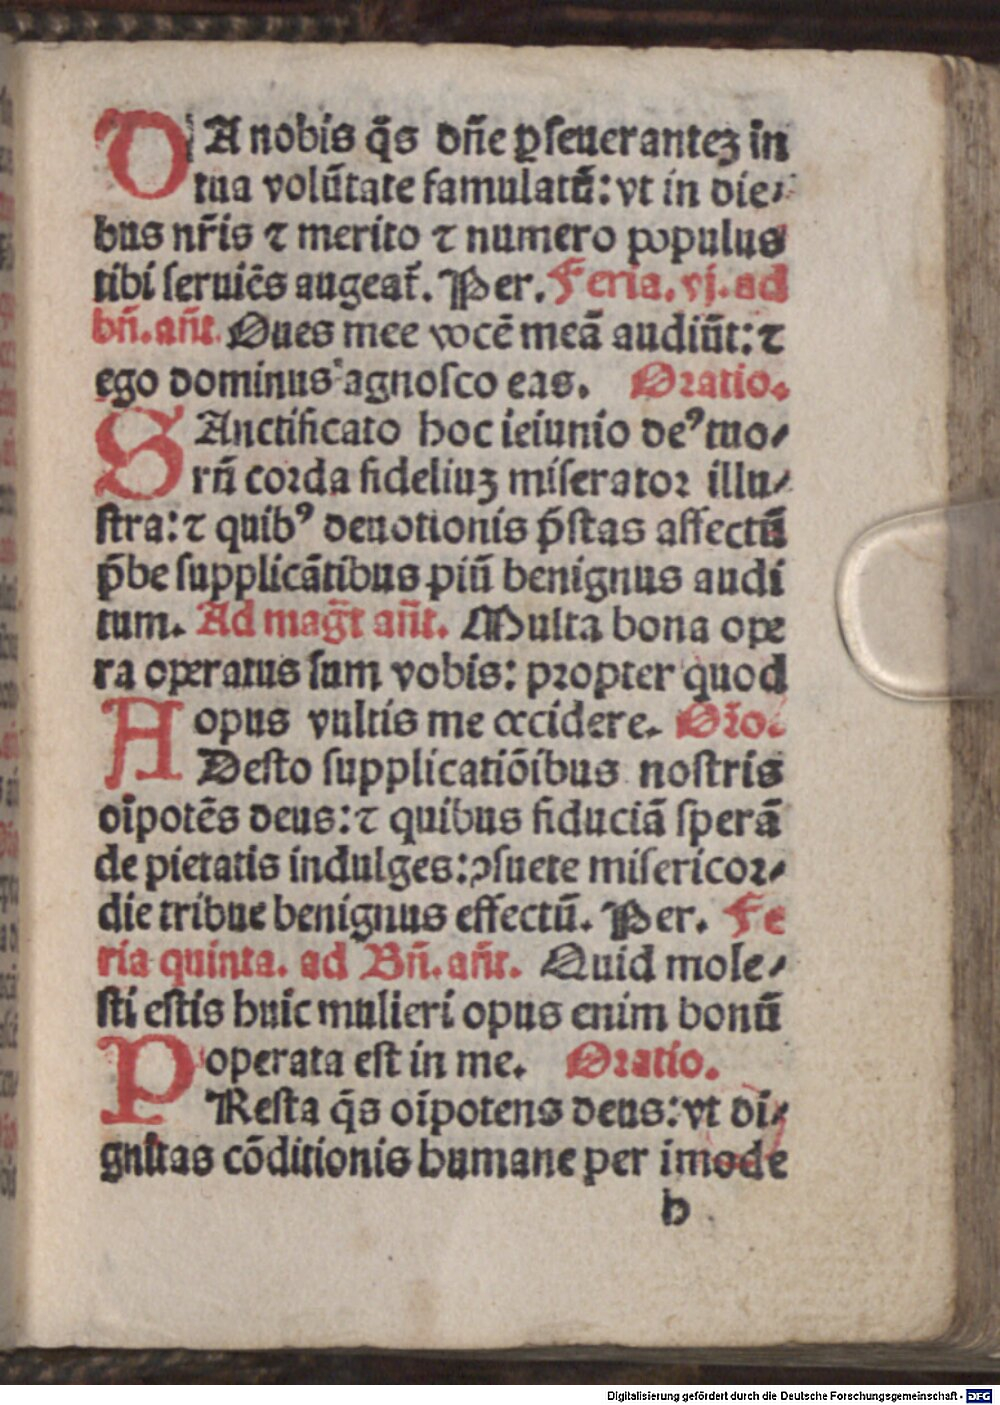 DA nobis q̃s dñe ꝑseueranteꝫ in
tua volũtate famulatũ: vt in die⸗
bus nr̃is ⁊ merito ⁊ numero populus
tibi seruiẽs augeat᷑. Per. Feria. vj. ad
bñ. añt. Oues mee vocẽ meã audiũt: ⁊
ego dominus agnosco eas. Oratio.
SAnctificato hoc ieiunio deꝰ tuo⸗
rũ corda fideliuꝫ miserator illu⸗
stra: ⁊ quibꝰ deuotionis p̃stas affectũ
p̃be supplicãtibus piũ benignus audi
tum. Ad mag̃t añt. Multa bona ope
ra operatus sum vobis: propter quod
opus vultis me occidere. Or̃o.
ADesto supplicatiõibus nostris
oĩpotẽs deus: ⁊ quibus fiduciã sperã
de pietatis indulges: ꝯsuete misericor⸗
die tribue benignus effectũ. Per. Fe
ria quinta. ad Bñ. añt. Quid mole⸗
sti estis huic mulieri opus enim bonũ
operata est in me. Oratio.
PResta q̃s oĩpotens deus: vt di⸗
gnitas cõditionis humane per imode
b
Digitalisierung gefördert durch die Deutsche Forschungsgemeinschaft - DFG